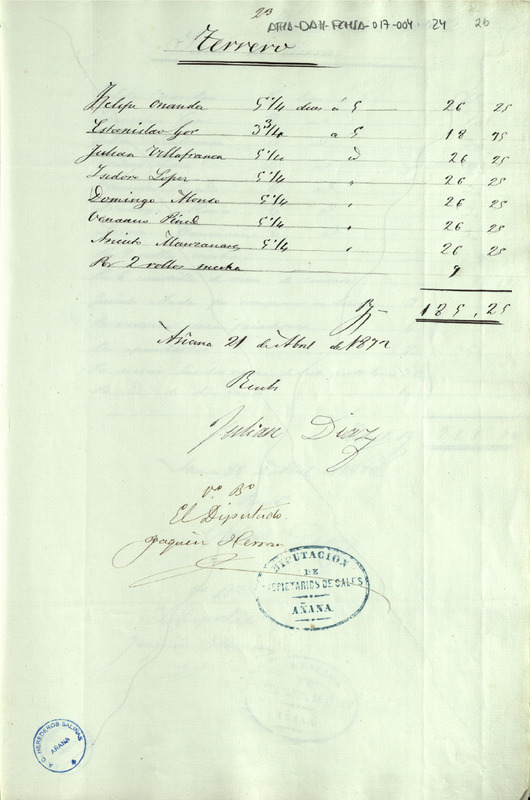 23
ATHA-DAH-FCHSA-017-004 24 26
Terrero
Felipe Ōnanda 5 1/4 dias á 5 26 25
Estanislao 3 3/4 a 5 18 75
Julian Villafranca 5 1/4 id 26 25
Isidoro Lopez 5 1/4 " 26 25
Domingo Alonso 5 1/4 " 26 25
Venancio 5 1/4 " 26 25
Aniceto Manzanares 5 1/4 " 26 25
Por 2 rollos mecha 9
185,25
Añana 21 de Abril de 1872
Recibi
Julian Diaz
Vº Bº
El Diputado
Joaquin Herran
DIPUTACION
DE
PROPIETARIOS DE SALES
AÑANA.
A.C. HEREDEROS SALINAS
AÑANA